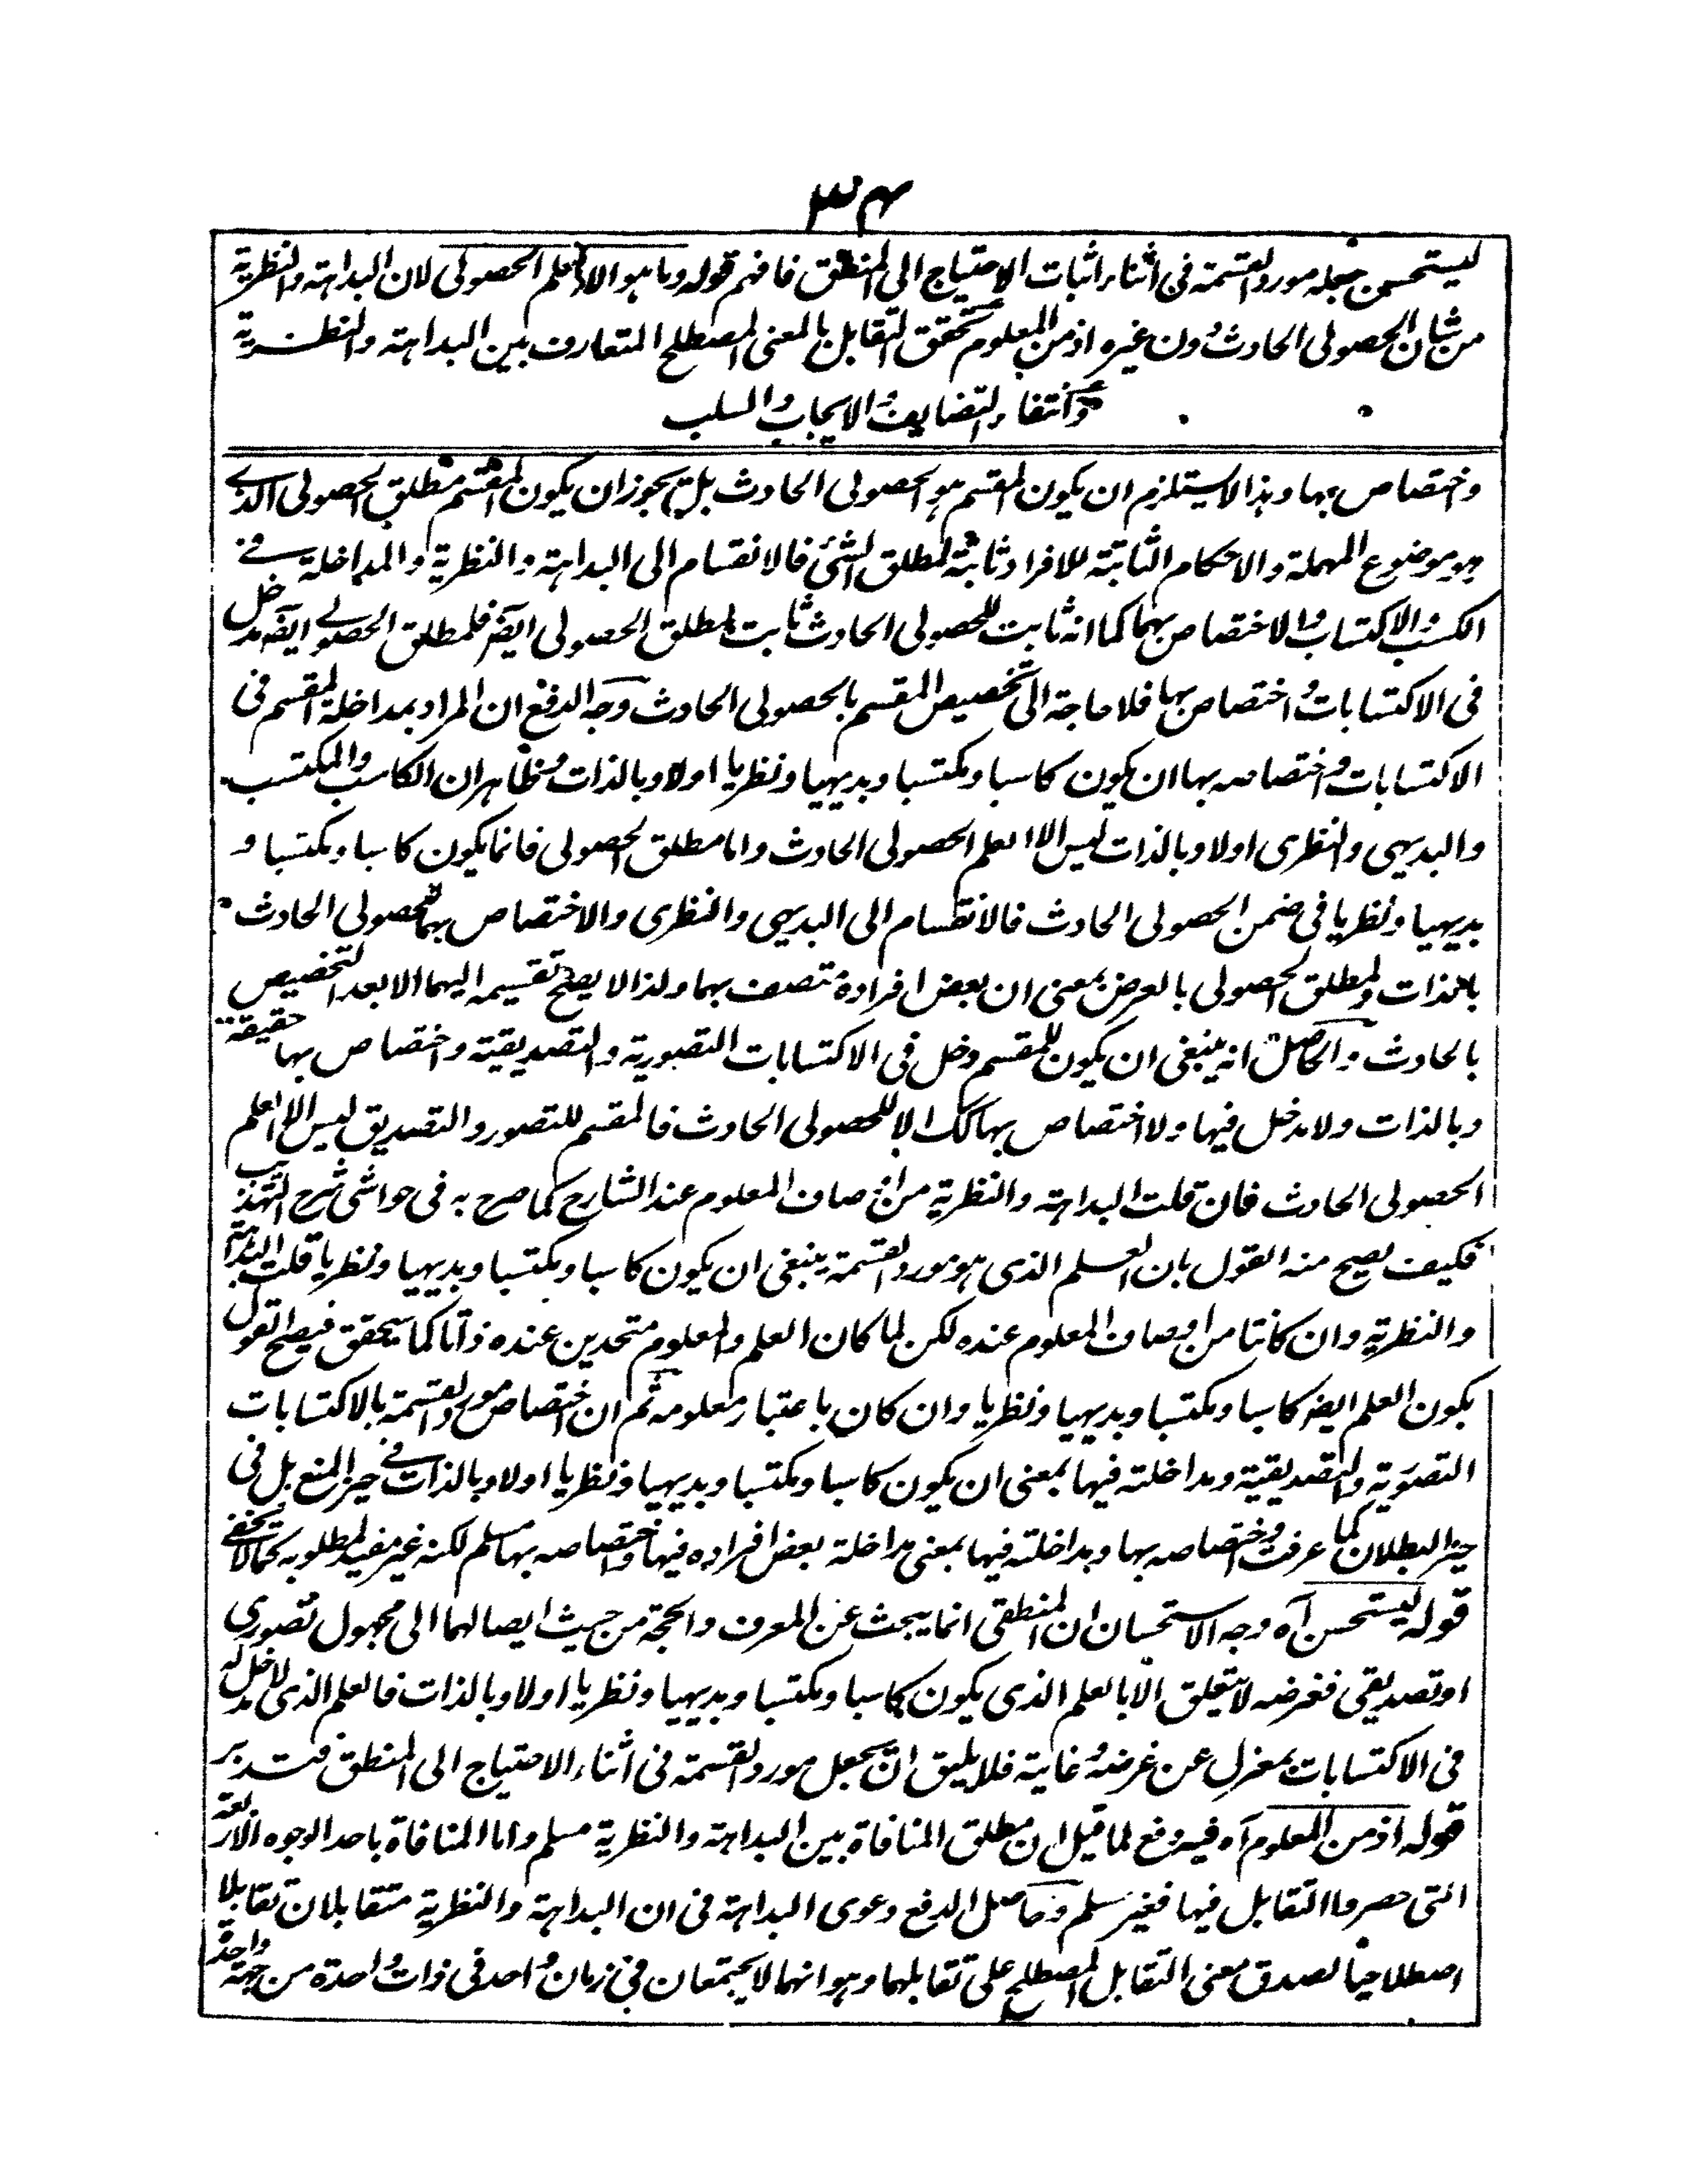 ٣٤
ليستحسن جعله مورد القسمة فى اثناء اثبات الاحتياج الى المنطق فافهم قوله وما هو الا العلم الحصولى لان البداهة والنظرية
من شان الحصولى الحادث دون غيره اذ من المعلوم تحقق التقابل بالمعنى المصطلح المتعارف بين البداهة والنظرية
وانتفاء التضايف والايجاب والسلب
واختصاص بها وهذا لا يستلزم ان يكون المقسم هو الحصولى الحادث بل يجوز ان يكون المقسم مطلق الحصولى الذے
هو موضوع المهملة والاحكام الثابتة للافراد ثابتة لمطلق الشئ فالانقسام الى البداهة والنظرية والمداخلة فے
الكسب والاكتساب والاختصاص بهما كما انه ثابت للحصولى الحادث ثابت لمطلق الحصولى ايضا فلمطلق الحصولے ايضا مدخل
فى الاكتسابات واختصاص بها فلا حاجة الى تخصيص المقسم بالحصولى الحادث وجه الدفع ان المراد بمداخلة المقسم فى
الاكتسابات واختصاصه بها ان يكون كاسبا ومكتسبا وبديهيا ونظريا اولا وبالذات وظاهر ان الكاسب والمكتسب
والبديهى والنظرى اولا وبالذات ليس الا العلم الحصولى الحادث واما مطلق الحصولى فانما يكون كاسبا ومكتسبا و
بديهيا ونظريا فى ضمن الحصولى الحادث فالانقسام الى البديهى والنظرى والاختصاص بهما للحصولى الحادث
بالذات ولمطلق الحصولى بالعرض بمعنى ان بعض افراده تتصف بهما ولذا لا يصلح تقسيمه اليهما الا بعد التخصيص
بالحادث والحاصل انه ينبغى ان يكون للمقسم دخل فى الاكتسابات التصورية والتصديقية واختصاص بها حقيقة
وبالذات ولا مدخل فيها ولا اختصاص بها كك الا للحصولى الحادث فالمقسم للتصور والتصديق ليس الا العلم
الحصولى الحادث فان قلت البداهة والنظرية من اوصاف المعلوم عند الشارح كما صرح به فى حواشى شرح التهذيب
فكيف يصح منه القول بان العلم الذى هو مورد القسمة ينبغى ان يكون كاسبا ومكتسبا وبديهيا ونظريا قلت البداهة
والنظرية وان كانتا من اوصاف المعلوم عنده لكن لما كان العلم والمعلوم متحدين عنده ذاتا كما سيحقق فيصح القول
بكون العلم ايضا كاسبا ومكتسبا وبديهيا ونظريا وان كان باعتبار معلومه ثم ان اختصاص مورد القسمة بالاكتسابات
التصورية والتصديقية ومداخلته فيها بمعنى ان يكون كاسبا ومكتسبا وبديهيا ونظريا اولا وبالذات فے حيز المنع بل فى
حيز البطلان كما عرفت واختصاصه بها ومداخلته فيها بمعنى مداخلة بعض افراده فيها واختصاصه بها مسلم لكنه غير مفيد لمطلوبه كما لا يخفى
قوله ليستحسن آه وجه الاستحسان ان المنطقى انما يبحث عن المعرف والحجة من حيث ايصالهما الى مجهول تصورى
او تصديقى فغرضه لا يتعلق الا بالعلم الذى يكون كاسبا ومكتسبا وبديهيا ونظريا اولا وبالذات فالعلم الذى لا مدخل له
فى الاكتسابات بمعزل عن غرضه وغايته فلا يليق ان يجعل مورد القسمة فى اثناء الاحتياج الى المنطق فتدبر
قوله اذ من المعلوم آه فيه دفع لما قيل ان مطلق المنافاة بين البداهة والنظرية مسلم واما المنافاة باحد الوجوه الاربعة
التى حصروا التقابل فيها فغير مسلم وحاصل الدفع دعوى البداهة فى ان البداهة والنظرية متقابلان تقابلا
اصطلاحيا لصدق معنى التقابل المصطلح على تقابلهما وهو انهما لا يجتمعان فى زمان واحد فى ذات واحدة من جهة واحدة